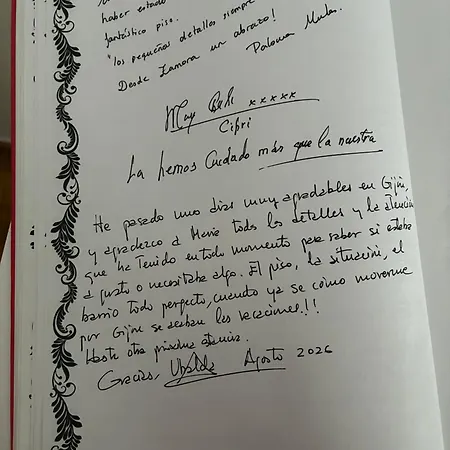 haber estado
fantástico piso.
"los pequeños detalles siempre
Desde Zamora un abrazo!
Paloma Mula.
Muy Beli xxxxx
Cipri
La hemos Cuidado más que la nuestra
He pasado unos dias muy agradables en Gijón,
y agradezco a María todos los detalles y la atención
que ha Tenido en todo momento para saber si estaba
a gusto o necesitaba algo. El piso, la situación, el
barrio todo perfecto, cuando ya se como moverme
por Gijón se acaban las vacaciones!!!
Hasta otra próxima estancia.
Gracias, Agosto 2026